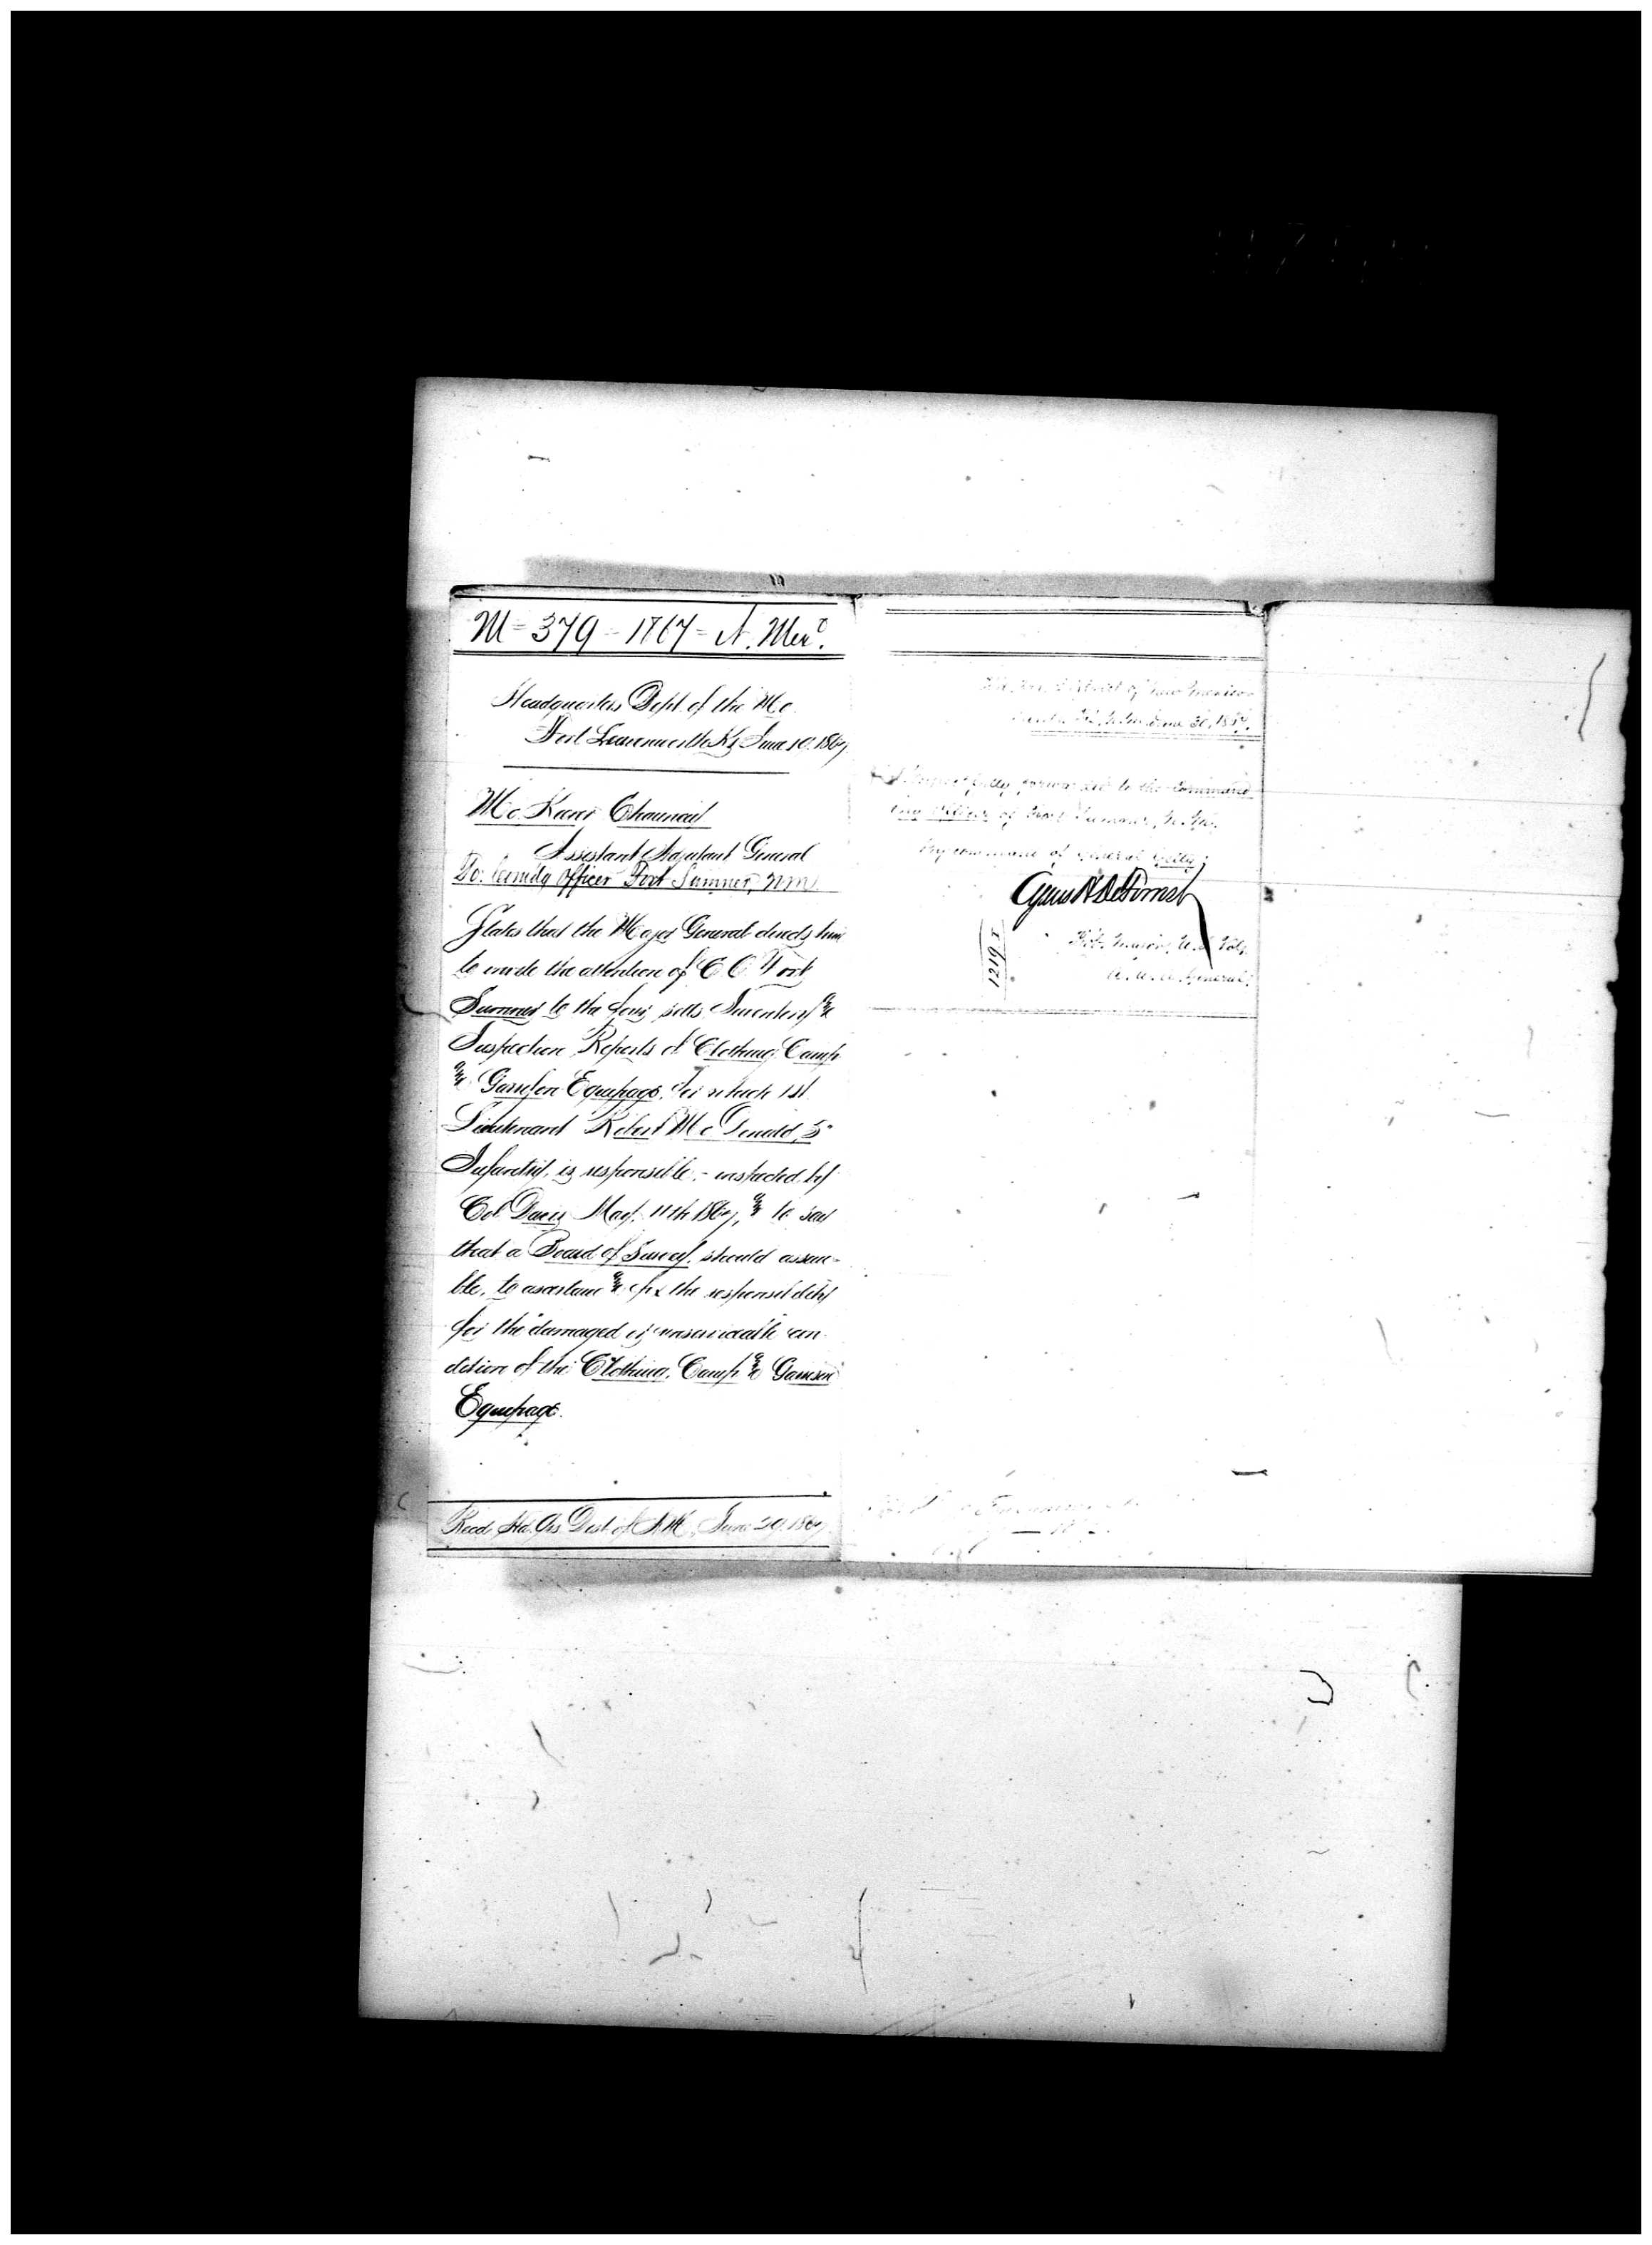 M = 379 = 1867 = N. Mexo.
Headquarters Dept. of the Mo.
Fort Leavenworth Ks June 10. 1867
Mc. Keever Chauncey
Assistant Adjutant General
To: Comdg Officer Fort Sumner, N.M.
States that the Major General directs him
to invite the attention of C. O. Fort
Sumner to the four setts Inventory &
Inspection Reports of Clothing Camp
& Garrison Equipage. for which 1st.
Lieutenant Robert Mc Donald, 5"
Infantry, is responsible:- inspected by
Col. Davis May. 11th 1867, & to say
that a Board of Survey. should assem-
ble, to ascertain & fix the responsibility
for the damaged or unserviceable con-
dition of the Clothing, Camp & Garrison
Equipage.
Recd. Hd. Qrs. Dist. of N.M. June 29. 1867
Hd. Qrs. District of New Mexico
Santa Fé, N.M. June 30, 1867.
Respectfully forwarded to the Command-
ing Officer of Fort Sumner, N.M.
By command of General Getty;
Cyrus H. DeForrest
Bvt. Major, U.S. Vols.
A. A. A. General.
1219 I